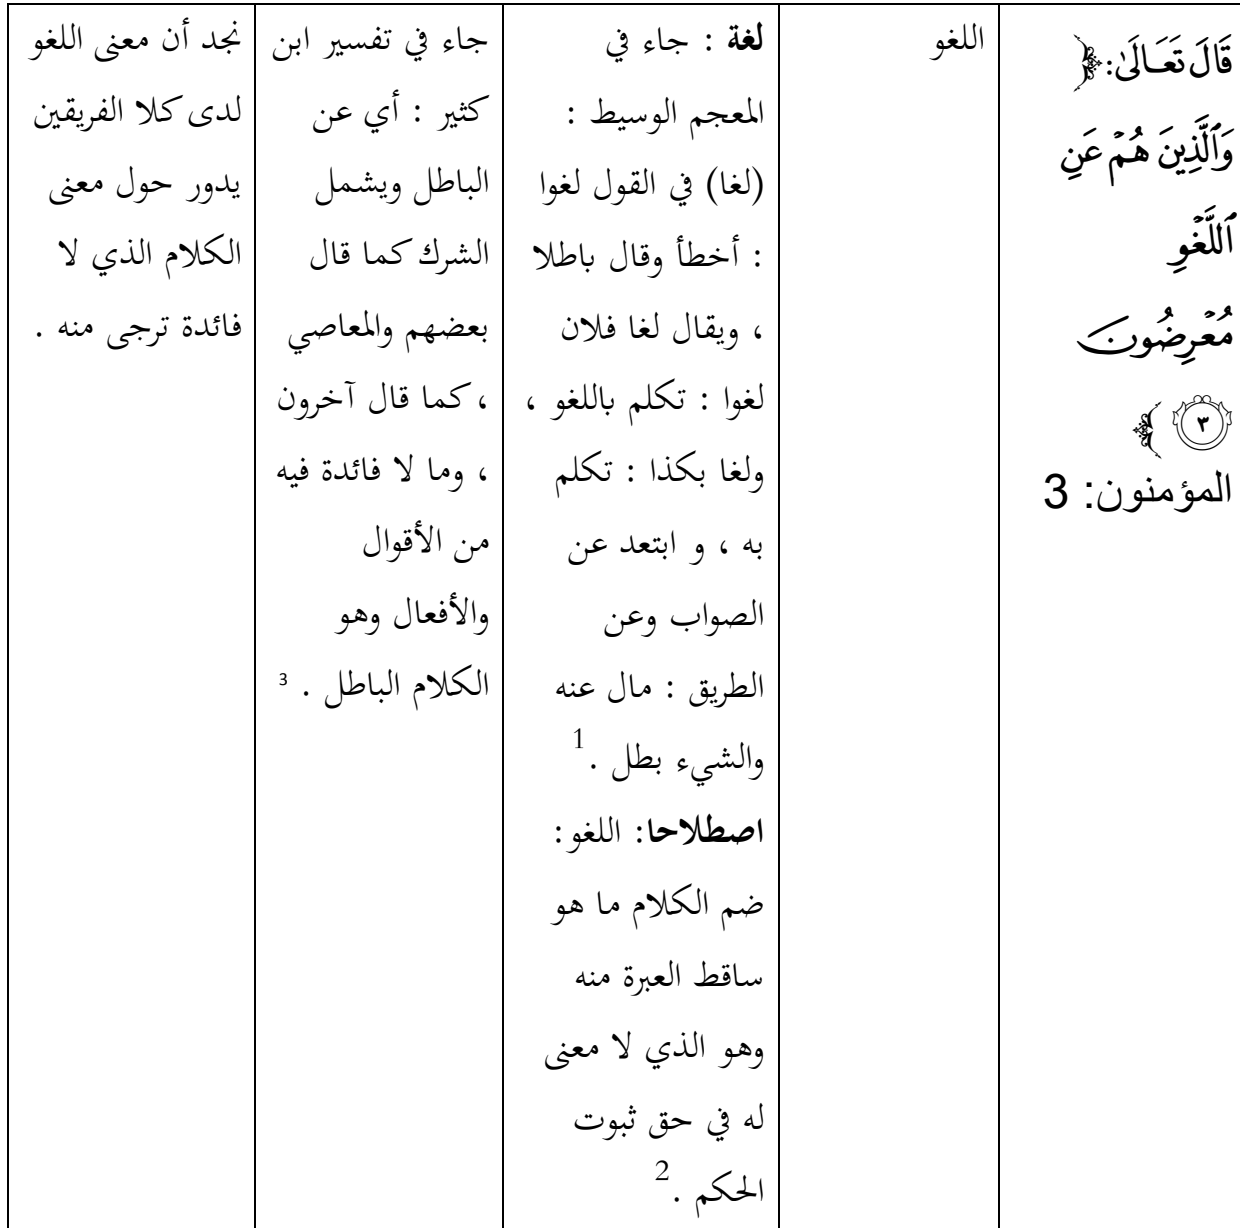 قَالَ تَعَالَىٰ: ﴿
وَٱلَّذِينَ هُمۡ عَنِ
ٱللَّغۡوِ
مُعۡرِضُونَ
٣ ﴾
المؤمنون: 3
اللغو
لغة : جاء في
المعجم الوسيط :
(لغا) في القول لغوا
: أخطأ وقال باطلا
، ويقال لغا فلان
لغوا : تكلم باللغو ،
ولغا بكذا : تكلم
به ، و ابتعد عن
الصواب وعن
الطريق : مال عنه
والشيء بطل .1
اصطلاحا: اللغو:
ضم الكلام ما هو
ساقط العبرة منه
وهو الذي لا معنى
له في حق ثبوت
الحكم .2
جاء في تفسير ابن
كثير : أي عن
الباطل ويشمل
الشرك كما قال
بعضهم والمعاصي
، كما قال آخرون
، وما لا فائدة فيه
من الأقوال
والأفعال وهو
الكلام الباطل . 3
نجد أن معنى اللغو
لدى كلا الفريقين
يدور حول معنى
الكلام الذي لا
فائدة ترجى منه .